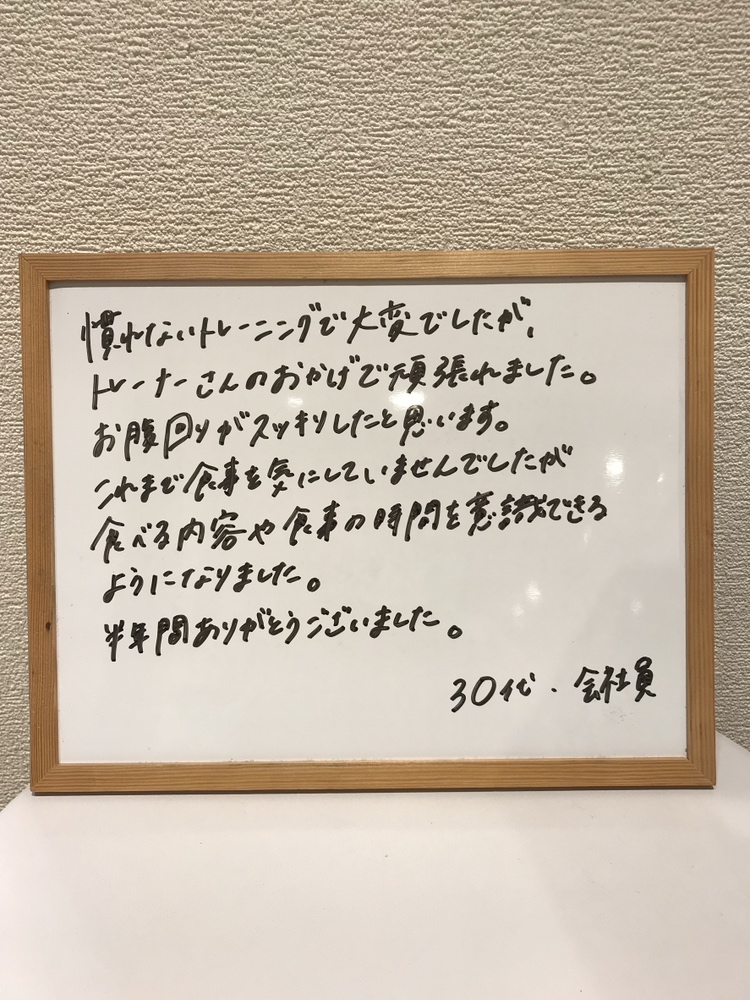 慣れないトレーニングで大変でしたが、
トレーナーさんのおかげで頑張れました。
お腹回りがスッキリしたと思います。
これまで食事を気にしていませんでしたが
食べる内容や食事の時間を意識できる
ようになりました。
半年間ありがとうございました。
30代・会社員